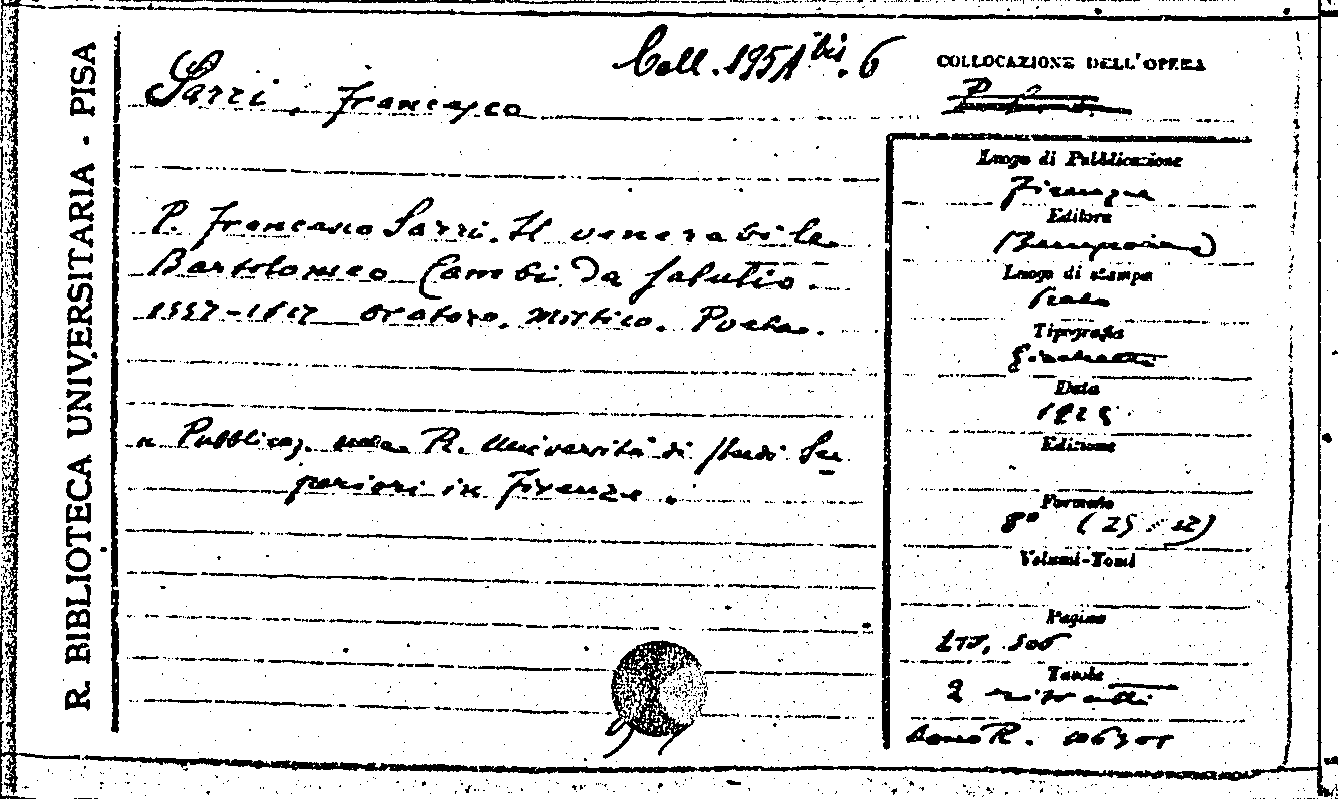 R. BIBLIOTECA UNIVERSITARIA - PISA
Coll. 195A bis. 6
Sarri. Francesco
P. Francesco Sarri. Il venerabile
Bartolomeo Cambi da Salutio.
1557-1617 Oratore. Mistico. Poeta.
« Pubblicaz. della R. Università di Studi Su
periori in Firenze.
COLLOCAZIONE DELL'OPERA
Luogo di Pubblicazione
Firenze
Editore
(Bemporad)
Luogo di stampa
Prato
Tipografia
Giachetti
Data
1925
Edizione
Formato
8° (25 × )
Volumi-Tomi
Pagine
506
Tavole
2 ritratti
Dono R.